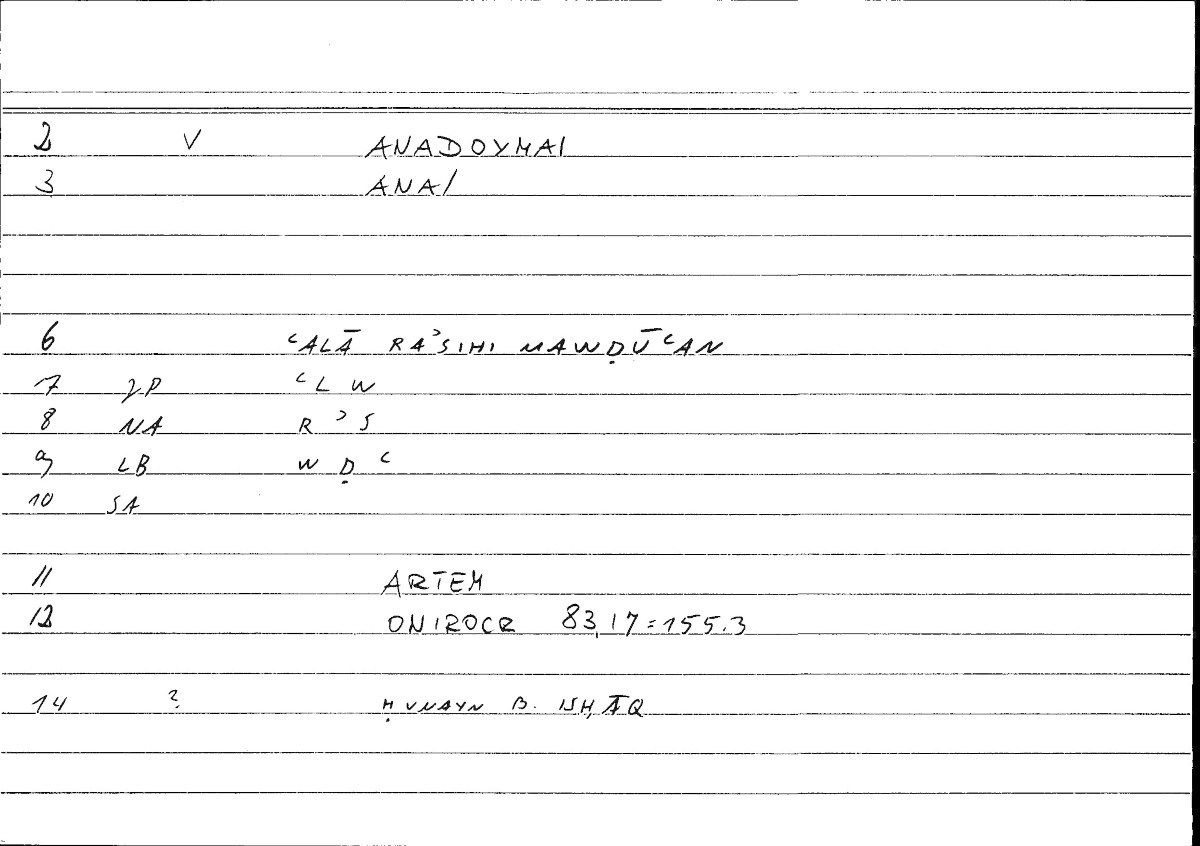 2 V ANADOYMAI
3 ANA/
6 ʿALĀ RAʾSIHI MAWḌŪʿAN
7 JP ʿLW
8 NA RʾS
9 LB WḌʿ
10 SA
11 ARTEM
12 ONIROCR 83,17=155.3
14 ? ḤUNAYN B. ISḤĀQ